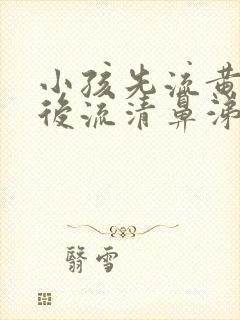 小孩先流黄
後流清鼻涕
翳雪